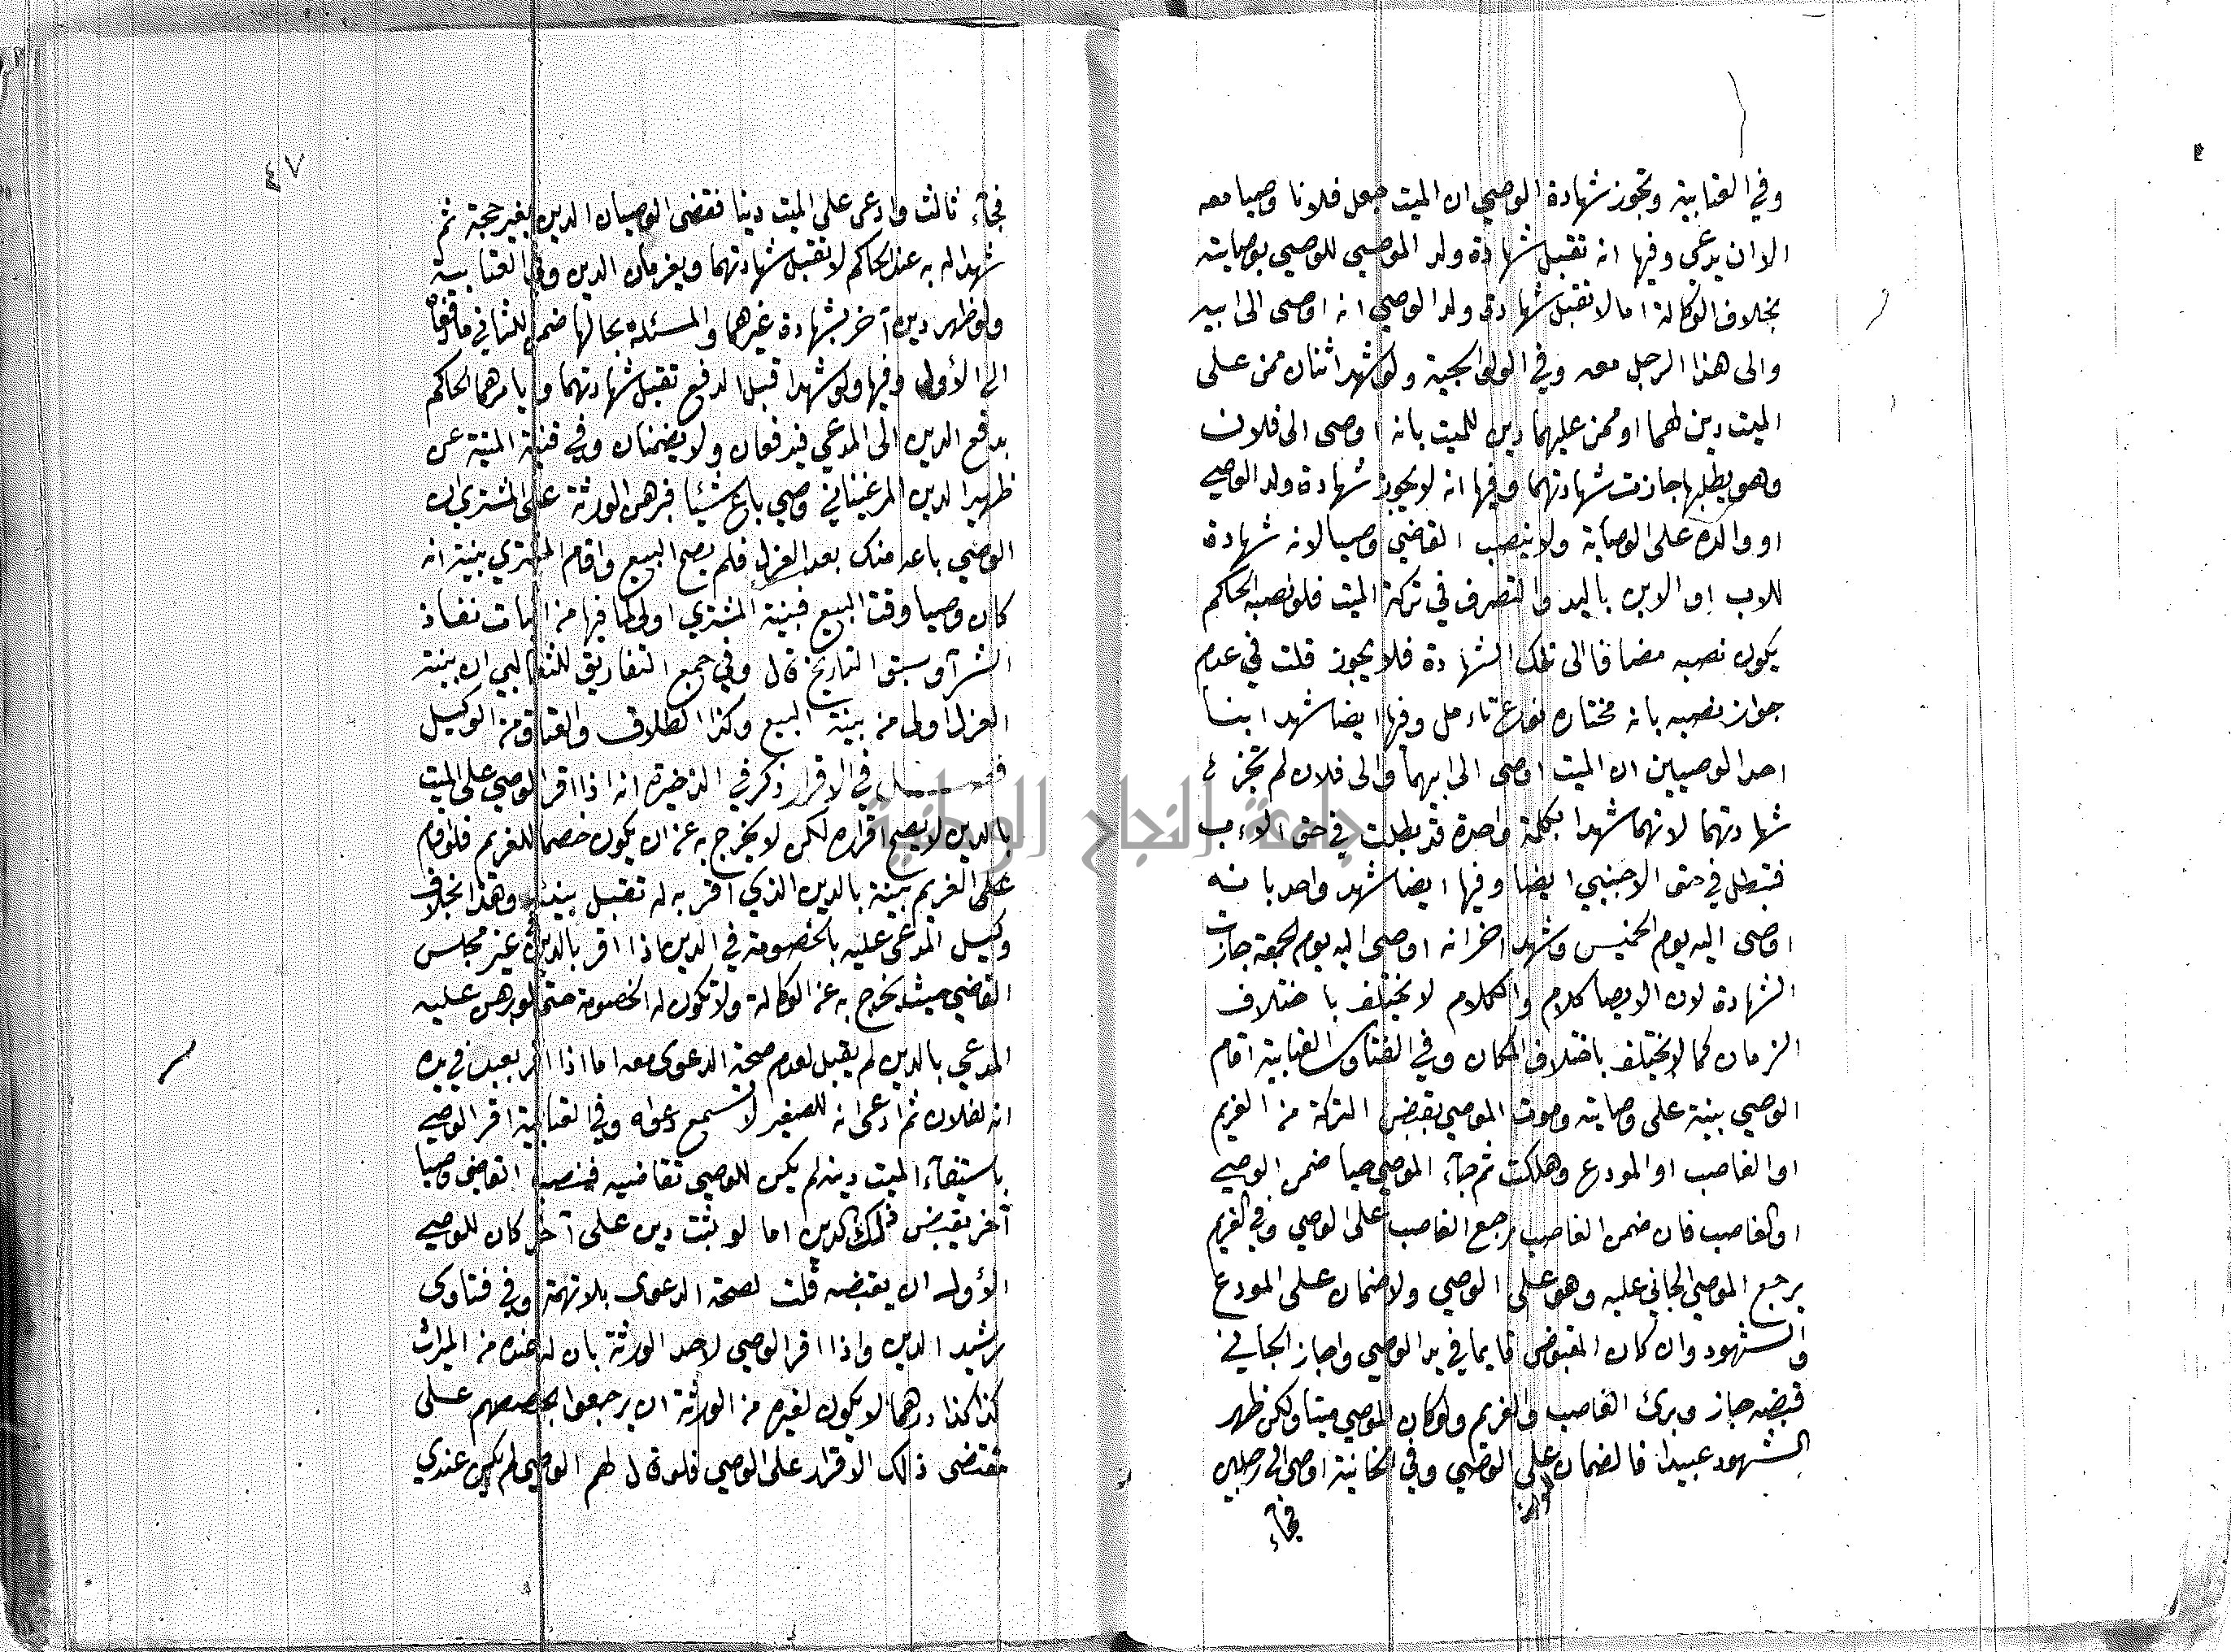 وفي العتابية وتجوز شهادة الوصي ان الميت جعل فلانا وصيا معه
الا ان يدعي وفيها انه تقبل شهادة ولد الموصي للوصي بوصايته
بخلاف الوكالة اما لا تقبل شهادة ولد الوصي انه اوصى الى ابيه
والى هذا الرجل معه وفي الولوالجية ولو شهد اثنان ممن على
الميت دين لهما او ممن عليهما دين للميت بانه اوصى الى فلان
وهو يطلبها جازت شهادتهما وفيها انه لا يجوز شهادة ولد الوصي
او والده على الوصاية ولا ينصب القاضي وصيا لانه شهادة
للاب او الابن باليد والتصرف في تركة الميت فلو نصبه الحاكم
يكون نصبه مضافا الى تلك الشهادة فلا يجوز قلت في عدم
جواز نصبه بانه مختاره نوع تاءمل وفيها ايضا شهد ابنا
احد الوصيين ان الميت اوصى الى ابيهما والى فلان لم تجز
شهادتهما لانهما شهدا بكلمة واحدة قد بطلت في حق الاب
فتبطل في حق الاجنبي ايضا وفيها ايضا شهد واحد بانه
اوصى اليه يوم الخميس وشهد اخر انه اوصى اليه يوم الجمعة جازت
الشهادة لان الايصا كلام والكلام لا يختلف باختلاف
الزمان كما لا يختلف باختلاف المكان وفي الفتاوى العتابية اقام
الوصي بينة على وصايته وموت الموصي بقبض التركة من الغريم
او الغاصب او المودع وهلكت ثم جآء الموصي حيا ضمن الوصي
او الغاصب فان ضمن الغاصب رجع الغاصب على الوصي وفي الغريم
يرجع الموصي الجاني عليه وهو على الوصي ولا ضمان على المودع
والشهود وان كان المقبوض قايما في يد الوصي واجاز الجاني
قبضه جاز وبرئ الغاصب والغريم ولو كان الموصي ميتا ولكن ظهر
الشهود عبيدا فالضمان على الوصي وفي الخانية اوصى الى رجلين
فجآء
٤٧
فجآء ثالث وادعى على الميت دينا فقضى الوصيان الدين بغير حجة ثم
شهدا له به عند الحاكم لا تقبل شهادتهما ويغرمان الدين وفي العتابية
ولو ظهر دين آخر بشهادة غيرهما والمسئلة بحالها ضمن للثاني ما دفعا
الى الأول وفيها ولو شهدا قبل الدفع تقبل شهادتهما ويامرهما الحاكم
بدفع الدين الى المدعي فيدفعان ولا يضمنان وفي قنية المنية عن
ظهير الدين المرغيناني وصي باع شيئا فبرهن الورثة على المشتري ان
الوصي باعه منك بعد العزل فلم يصح البيع واقام المشتري بينة انه
كان وصيا وقت البيع فبينة المشتري اولى لما فيها من اثبات نفاذ
الشرآ وسبق التاريخ قال وفي جمع التفاريق للثعالبي ان بينة
العزل اولى من بينة البيع وكذا الطلاق والعتاق من الوكيل
فصل في الاقرار ذكر في الذخيرة انه اذا اقر الوصي على الميت
بالدين لا يصح اقراره لكن لا يخرج به عن ان يكون خصما للغريم فلو اقام
على الغريم بينة بالدين الذي اقر به له تقبل بينته وهذا بخلاف
وكيل المدعى عليه بالخصومة في الدين اذا اقر بالدين في غير مجلس
القاضي حيث يخرج به عن الوكالة ولا تكون له الخصومة حتى لو برهن عليه
المدعي بالدين لم يقبل لعدم صحة الدعوى معه اما اذا اقر بعين في يده
انه لفلان ثم ادعى انه للصغير لا تسمع دعواه وفي العتابية اقر الوصي
باستيفآء الميت دينه لم يكن للوصي تقاضيه فينصب القاضي وصيا
آخر يقبض ذلك الدين اما لو ثبت دين على آخر كان للوصي
الأول ان يقبضه قلت لصحة الدعوى بلا تهمة وفي فتاوى
رشيد الدين واذا اقر الوصي لاحد الورثة بان له عنده من الميراث
كذا كذا درهما لا يكون لغيره من الورثة ان يرجعوا بحصصهم على
مقتضى ذلك الاقرار على الوصي فلو قال لهم الوصي لم يكن عندي
جامعة النجاح الوطنية